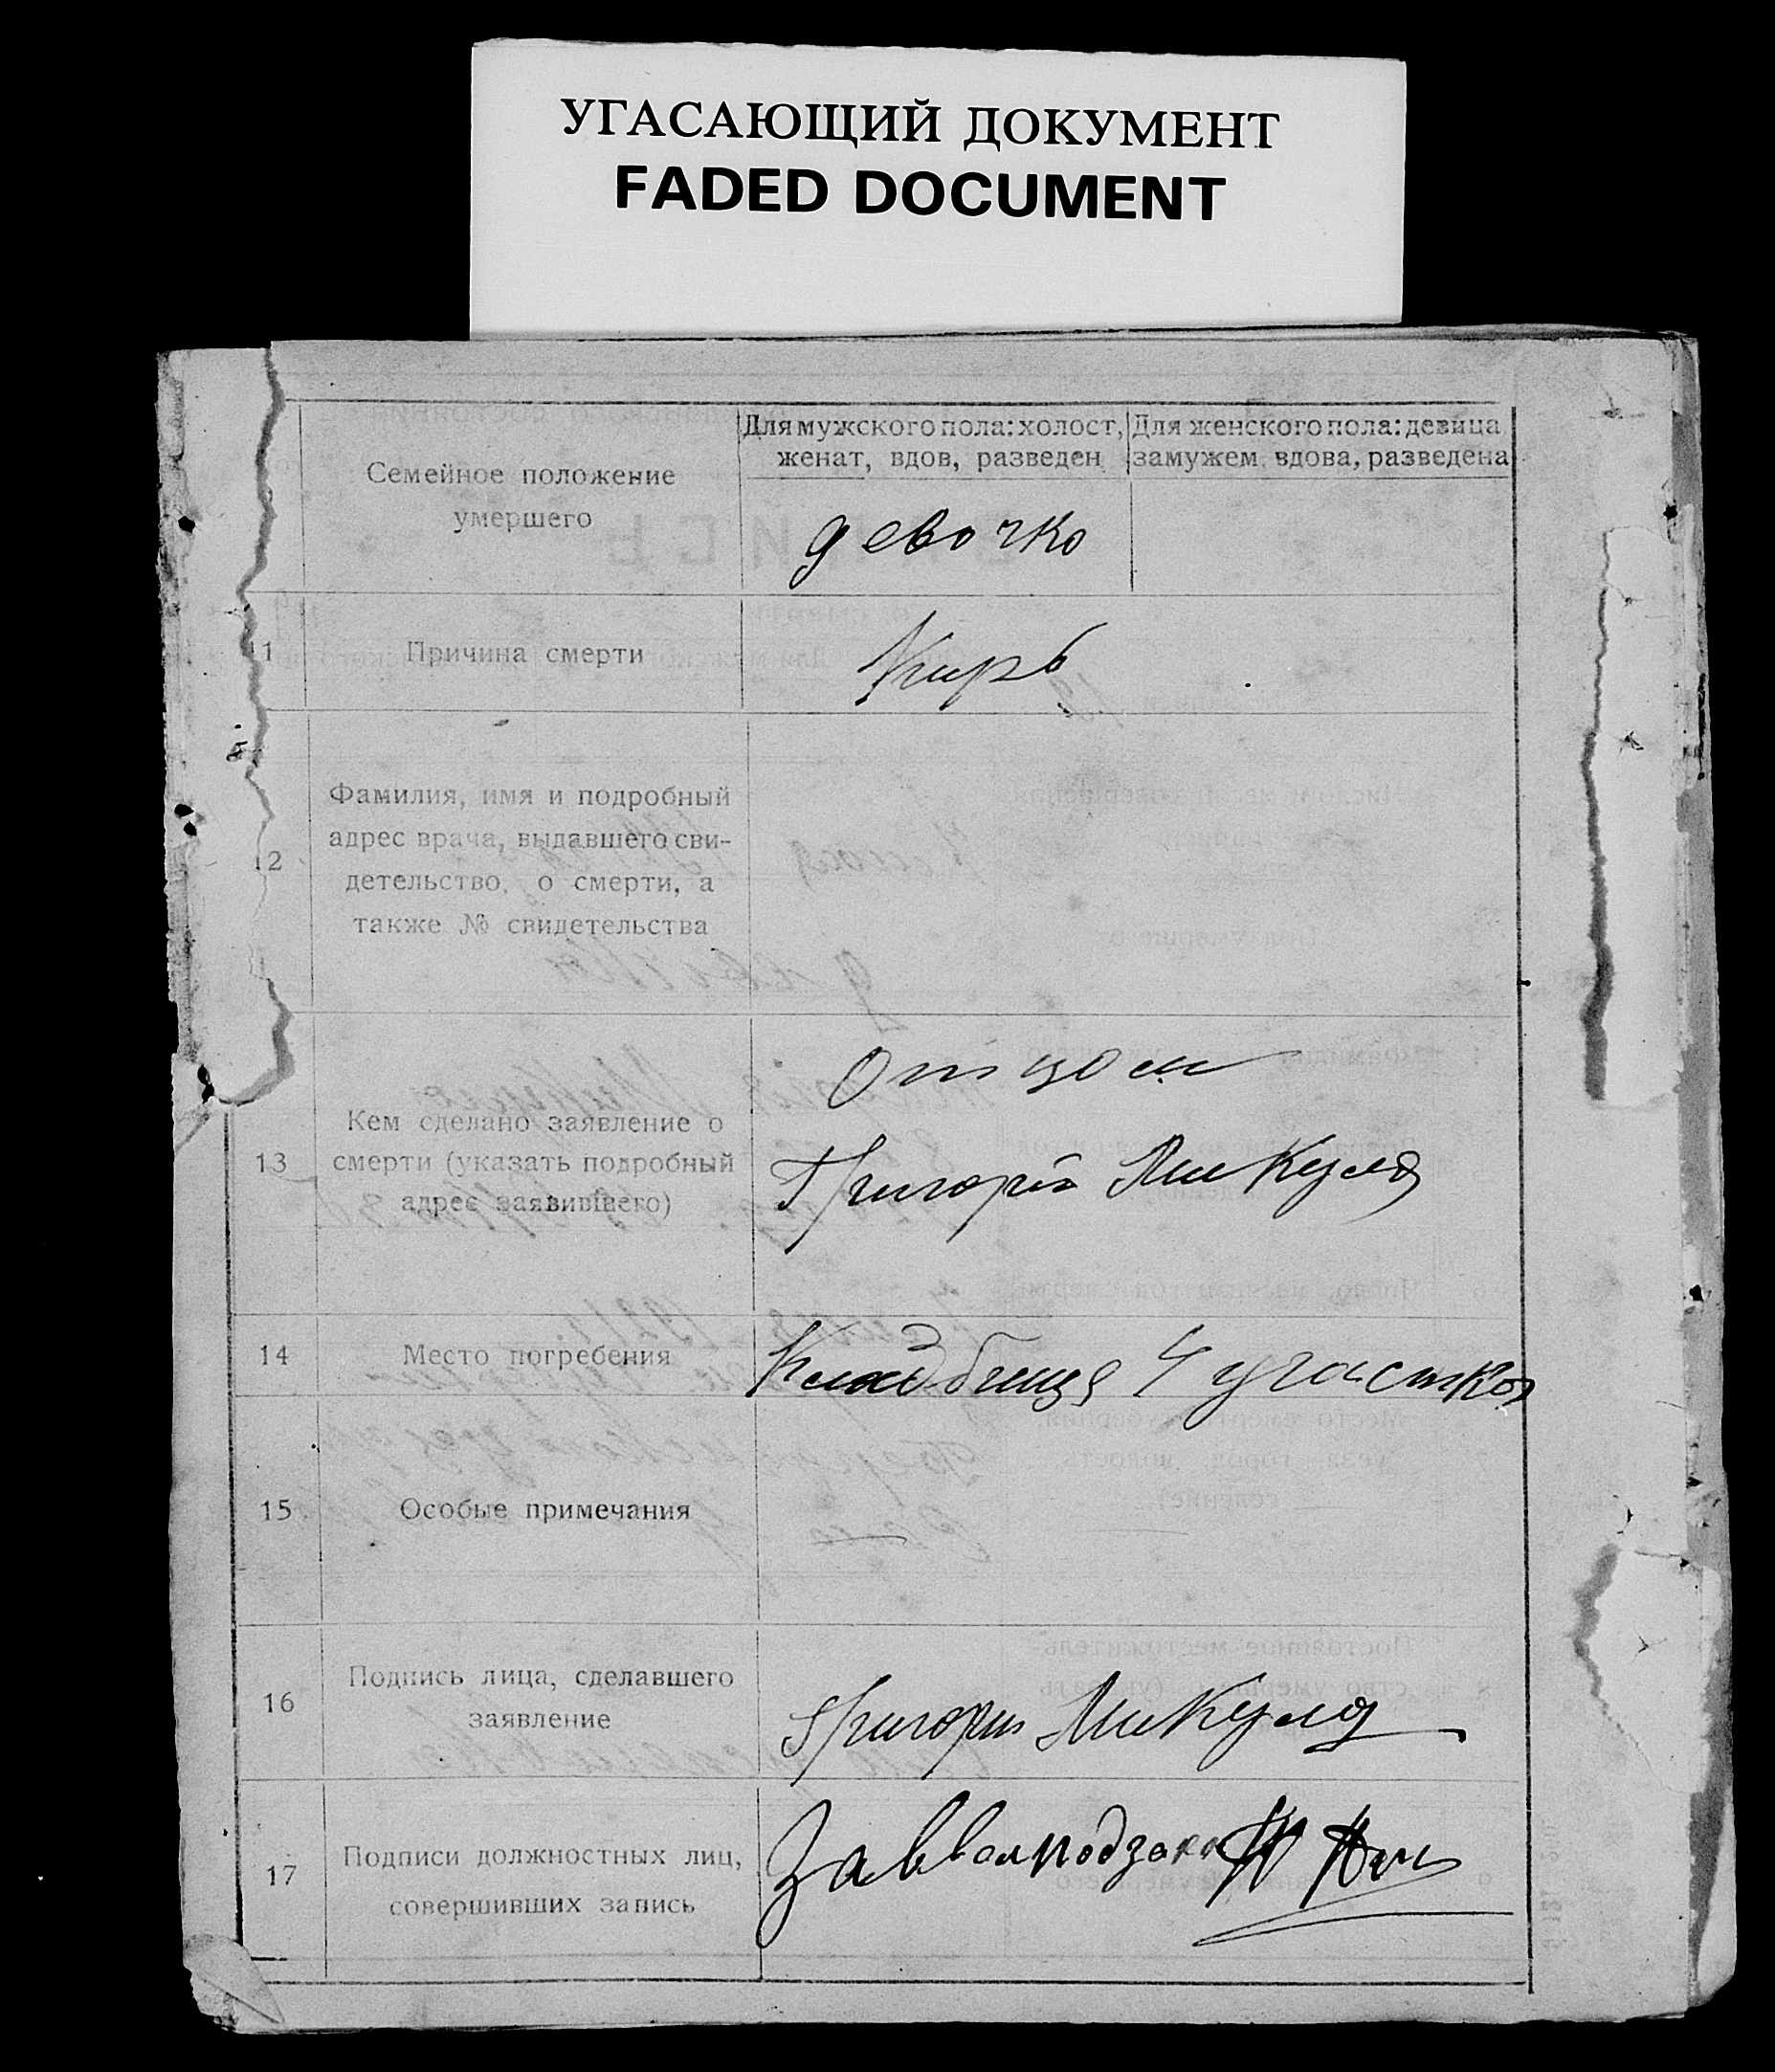 УГАСАЮЩИЙ ДОКУМЕНТ
FADED DOCUMENT
Семейное положение
умершего
Для мужского пола: холост,
женат, вдов, разведен
Для женского пола: девица
замужем, вдова, разведена
девочко
11
Причина смерти
Кирь
12
Фамилия, имя и подробный
адрес врача, выдавшего сви-
детельство, о смерти, а
также № свидетельства
13
Кем сделано заявление о
смерти (указать подробный
адрес заявившего)
отцом
Григорій Микуля
14
Место погребения
Кладбища 4 участка
15
Особые примечания
16
Подпись лица, сделавшего
заявление
Григорий Микуля
17
Подписи должностных лиц,
совершивших запись
Зав волподзаг